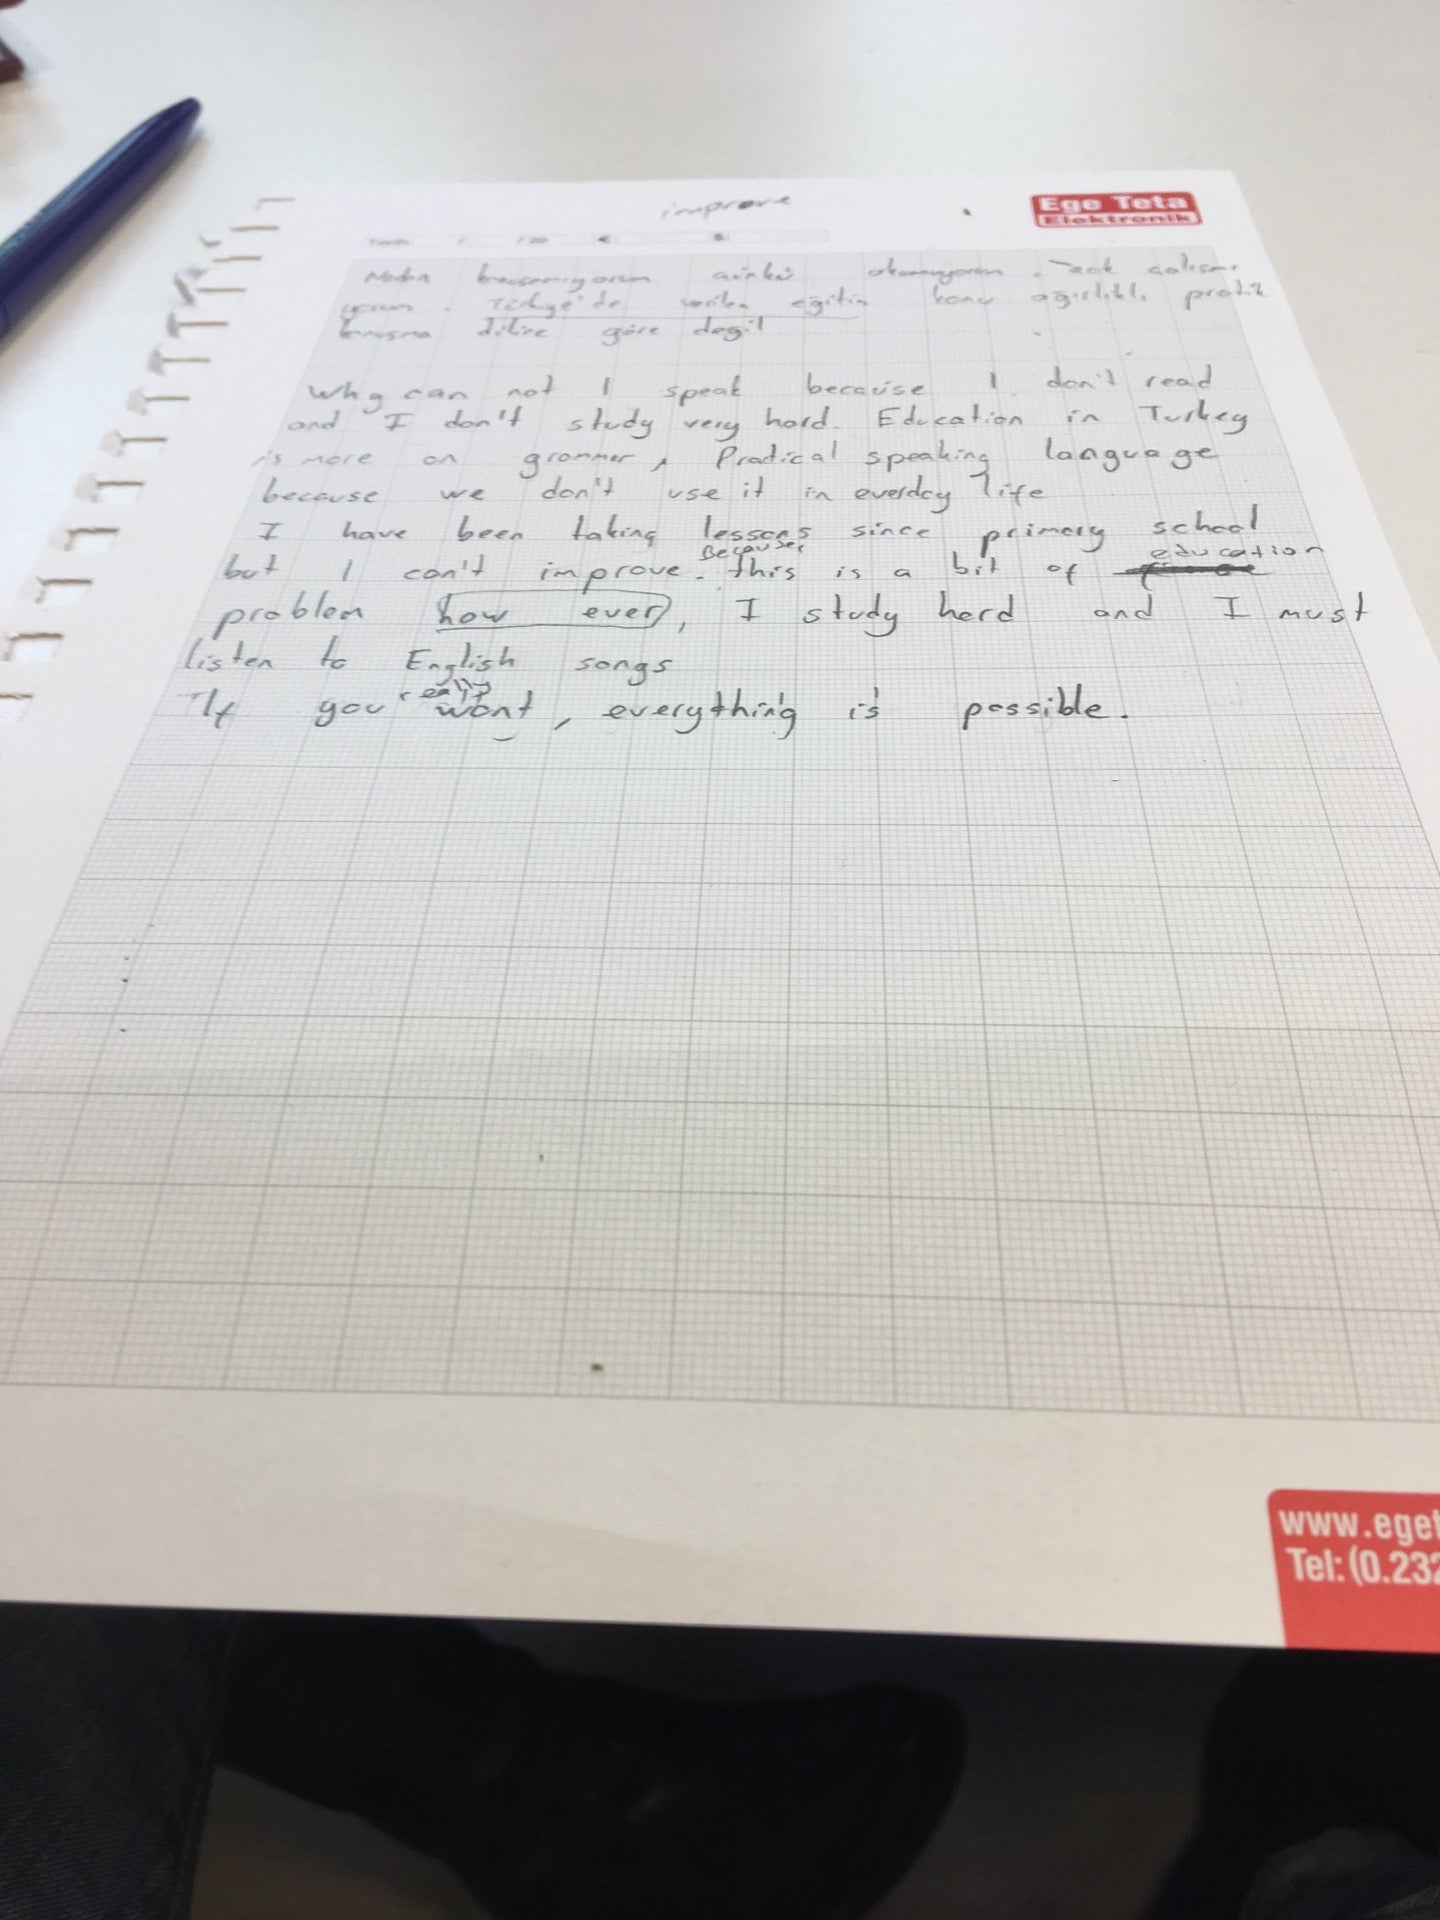 improve
Ege Teta
Elektronik
çünkü okumuyorum. çok çalışmı
yorum. Türkiye'de verilen eğitim konu ağırlıklı pratik
konuşma diline göre degil
Why can not I speak because I don't read
and I don't study very hard. Education in Turkey
is more on grammer, Pradical speaking language
because we don't use it in everdey life
I have been taking lessons since primary school
but I can't improve. Because, this is a bit of education
problem how ever, I study hard and I must
listen to English songs
If you really want, everything is possible.
www.eget
Tel:(0.232